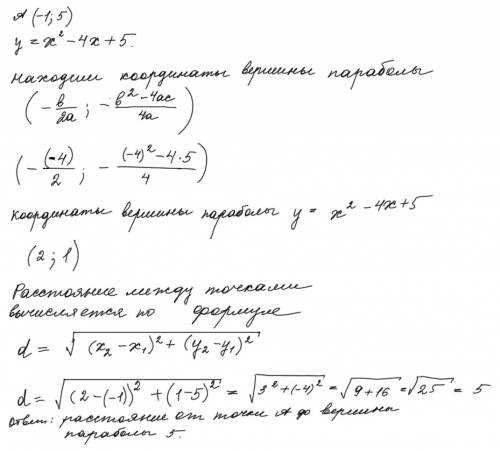 A (-1; 5)
y = x² - 4x + 5.
Находим координаты вершины параболы
( - в/2a ; - в² - 4ac/4a )
( - (-4)/2 ; - (-4)² - 4·5/4 )
координаты вершины параболы y = x² - 4x + 5
(2 ; 1)
Расстояние между точками
вычисляется по формуле
d = √(x₂ - x₁)² + (y₂ - y₁)²
d = √(2 - (-1))² + (1 - 5)² = √3² + (-4)² = √9 + 16 = √25 = 5
Ответ: расстояние от точки A до вершины
параболы 5.